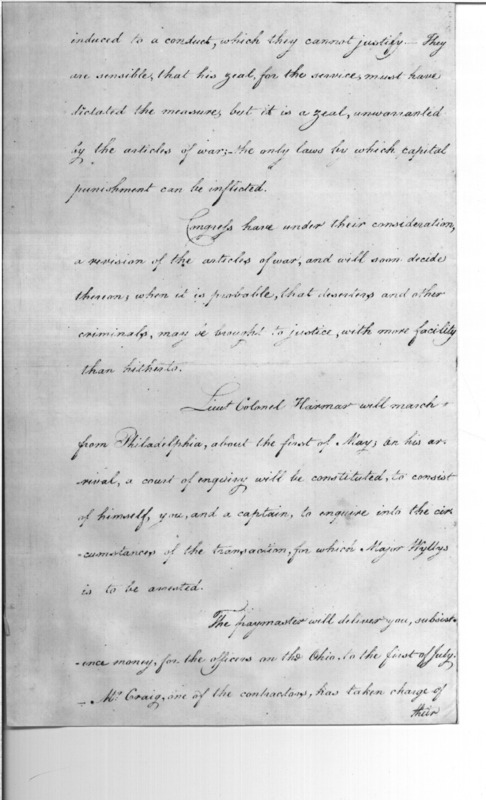 induced to a conduct, which they cannot justify — They
are sensible, that his zeal, for the service, must have
dictated the measure, but it is a zeal, unwarranted
by the articles of war; the only laws by which capital
punishment can be inflicted.
Congress have under their consideration,
a revision of the articles of war, and will soon decide
thereon; when it is probable, that deserters and other
criminals, may be brought to justice, with more facility
than hitherto.
Lieut Colonel Harmar will march
from Philadelphia, about the first of May; on his ar-
rival, a court of enquiry will be constituted, to consist
of himself, you, and a captain, to enquire into the cir
-cumstances of the transaction, for which Major Wyllys
is to be arrested.
The paymaster will deliver you, subsist-
-ence money, for the officers on the Ohio, to the first of July.
Mr. Craig, one of the contractors, has taken charge of
their